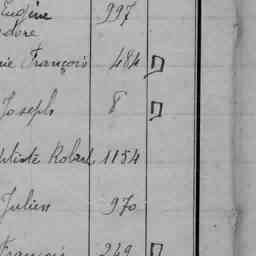 Eugène 997
dore
ie François 484
Joseph 8
ptiste Robert 1154
Julien 970
François 249